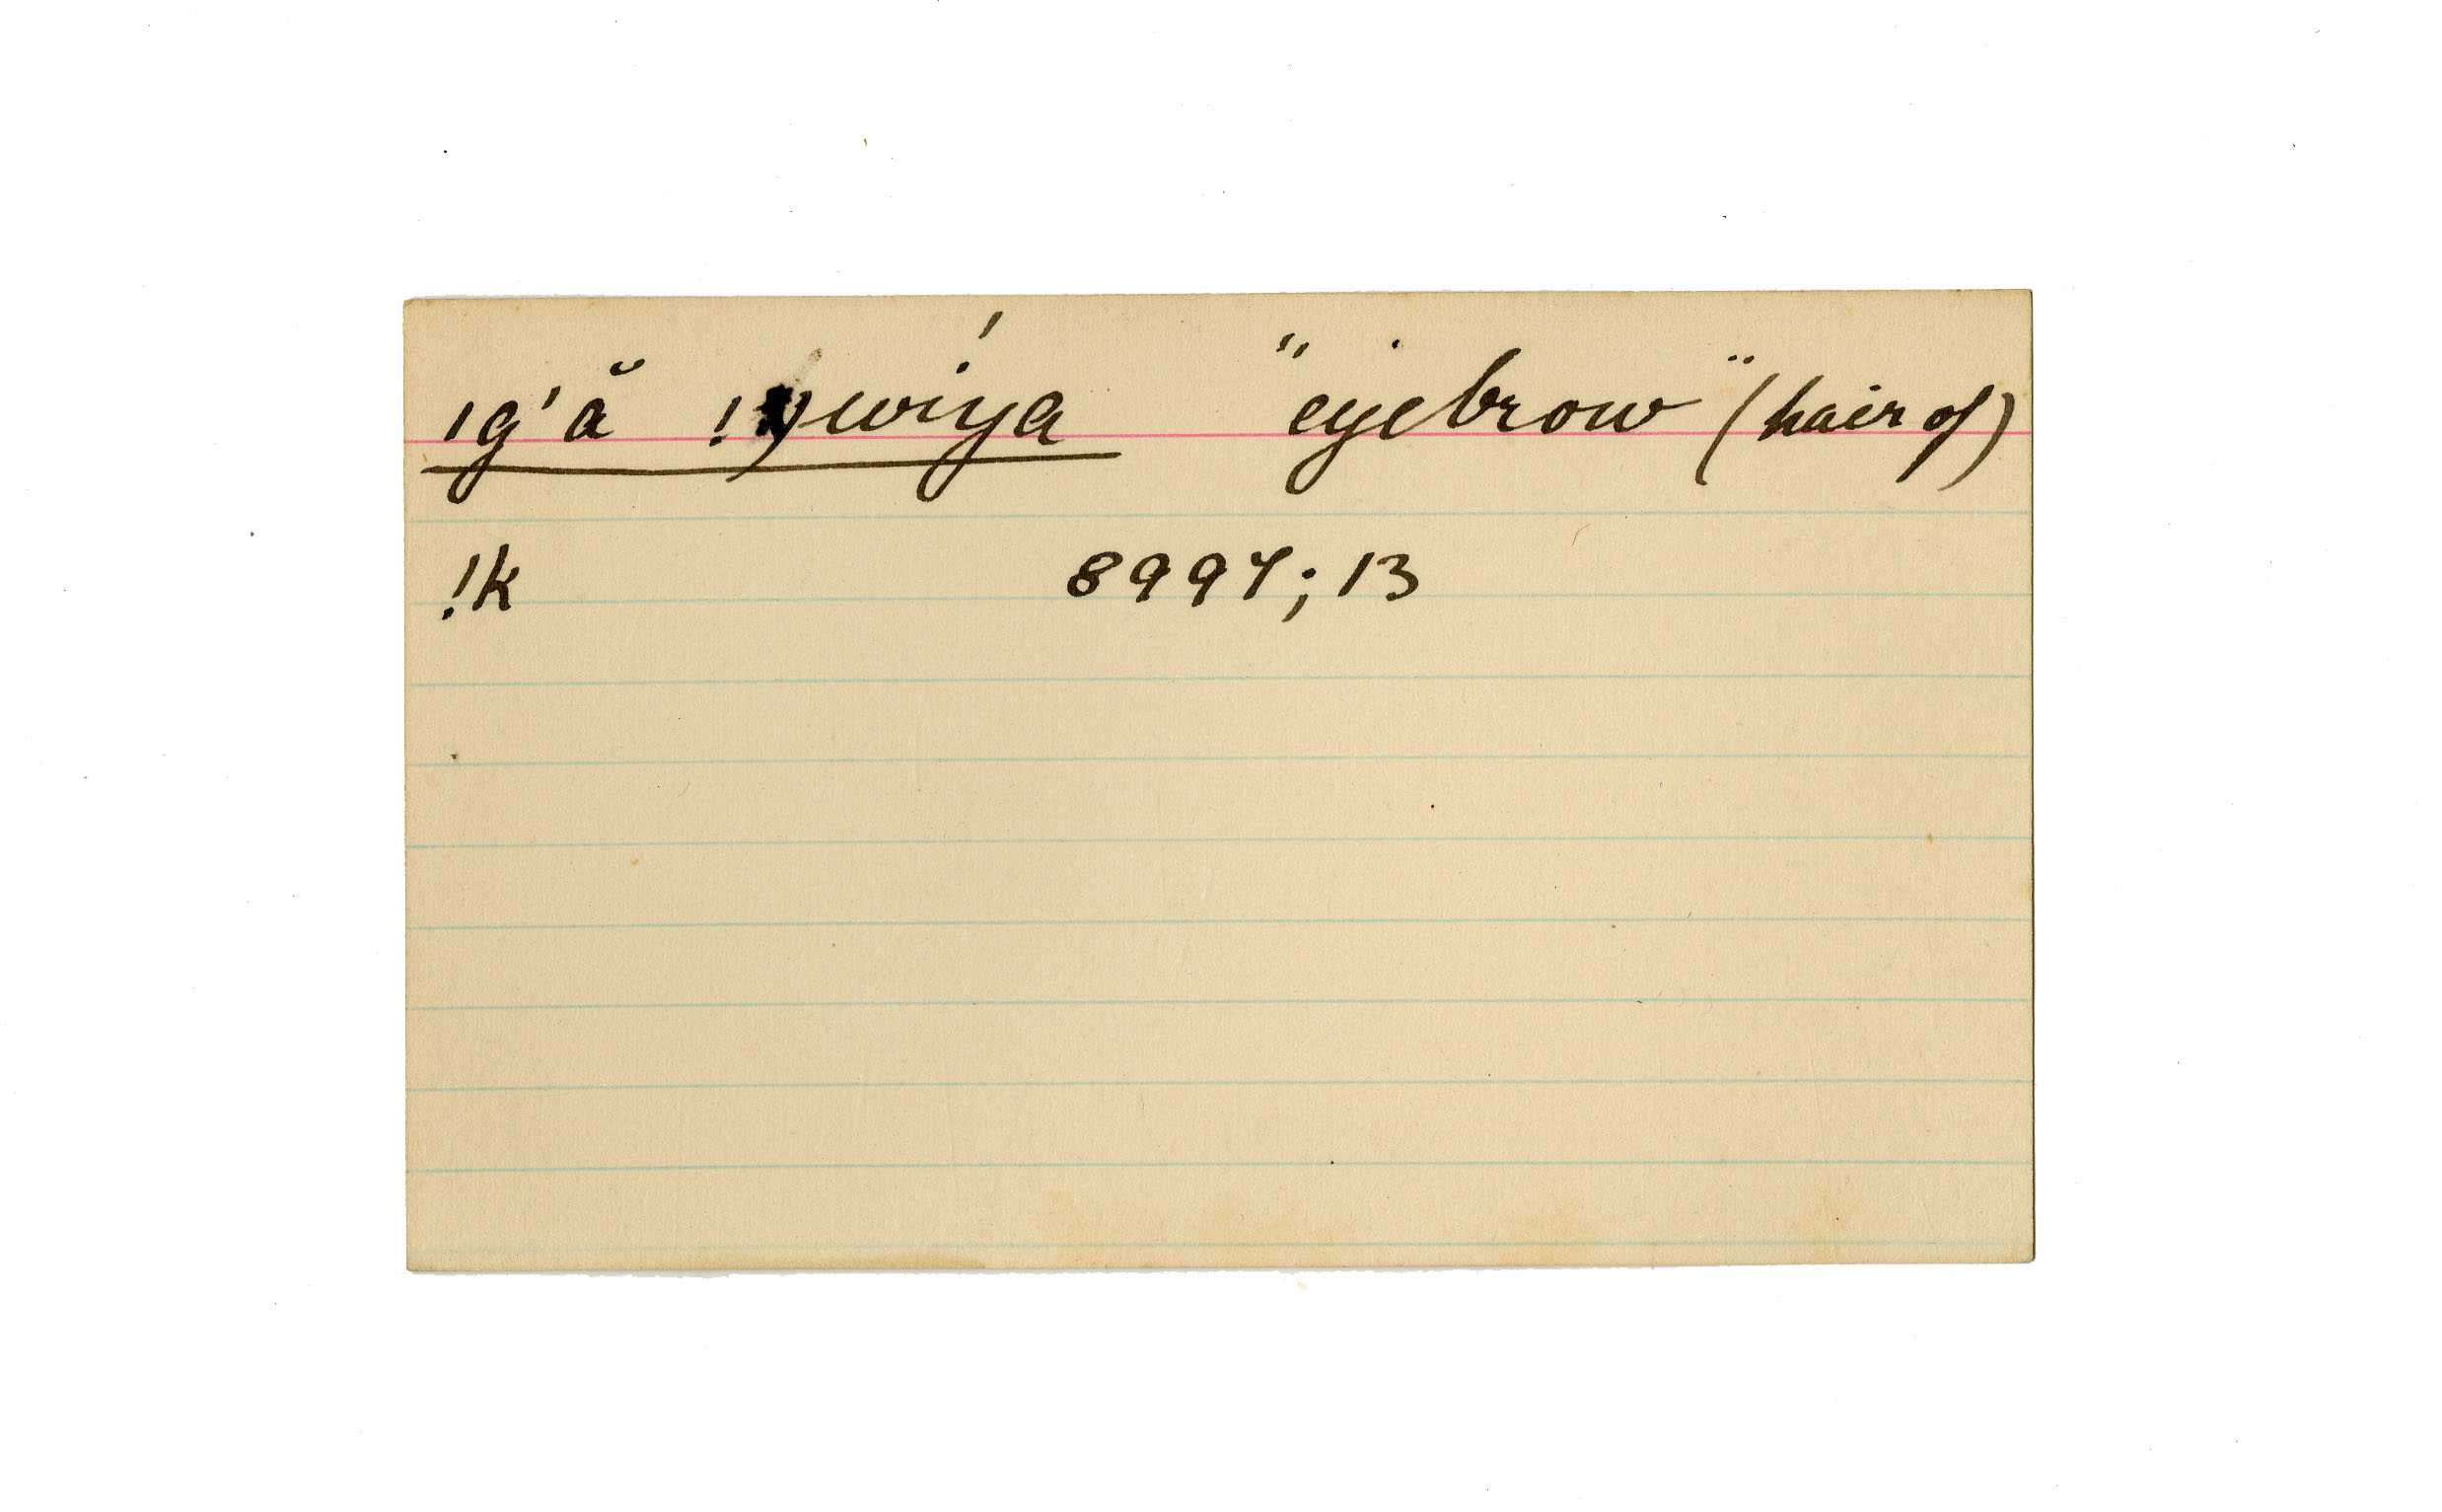 ıg'ă !ŋwi'ya "eyebrow" (hair of)
!k 8997; 13